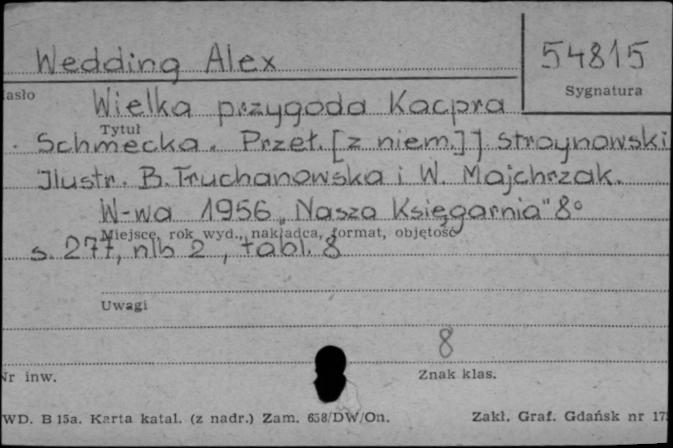 Wedding Alex
54815
Sygnatura
asło
Wielka przygoda Kacpra
Tytuł
Schmecka. Przeł. [z niem.] J. Stroynowski
Ilustr. B. Truchanowska i W. Majchrzak.
W-wa 1956 „Nasza Księgarnia" 8°
Miejsce, rok wyd., nakładca, format, objętość
s. 277, nlb 2, tabl. 8
Uwagi
8
Nr inw.
Znak klas.
WD. B 15a. Karta katal. (z nadr.) Zam. 658/DW/On.
Zakł. Graf. Gdańsk nr 17